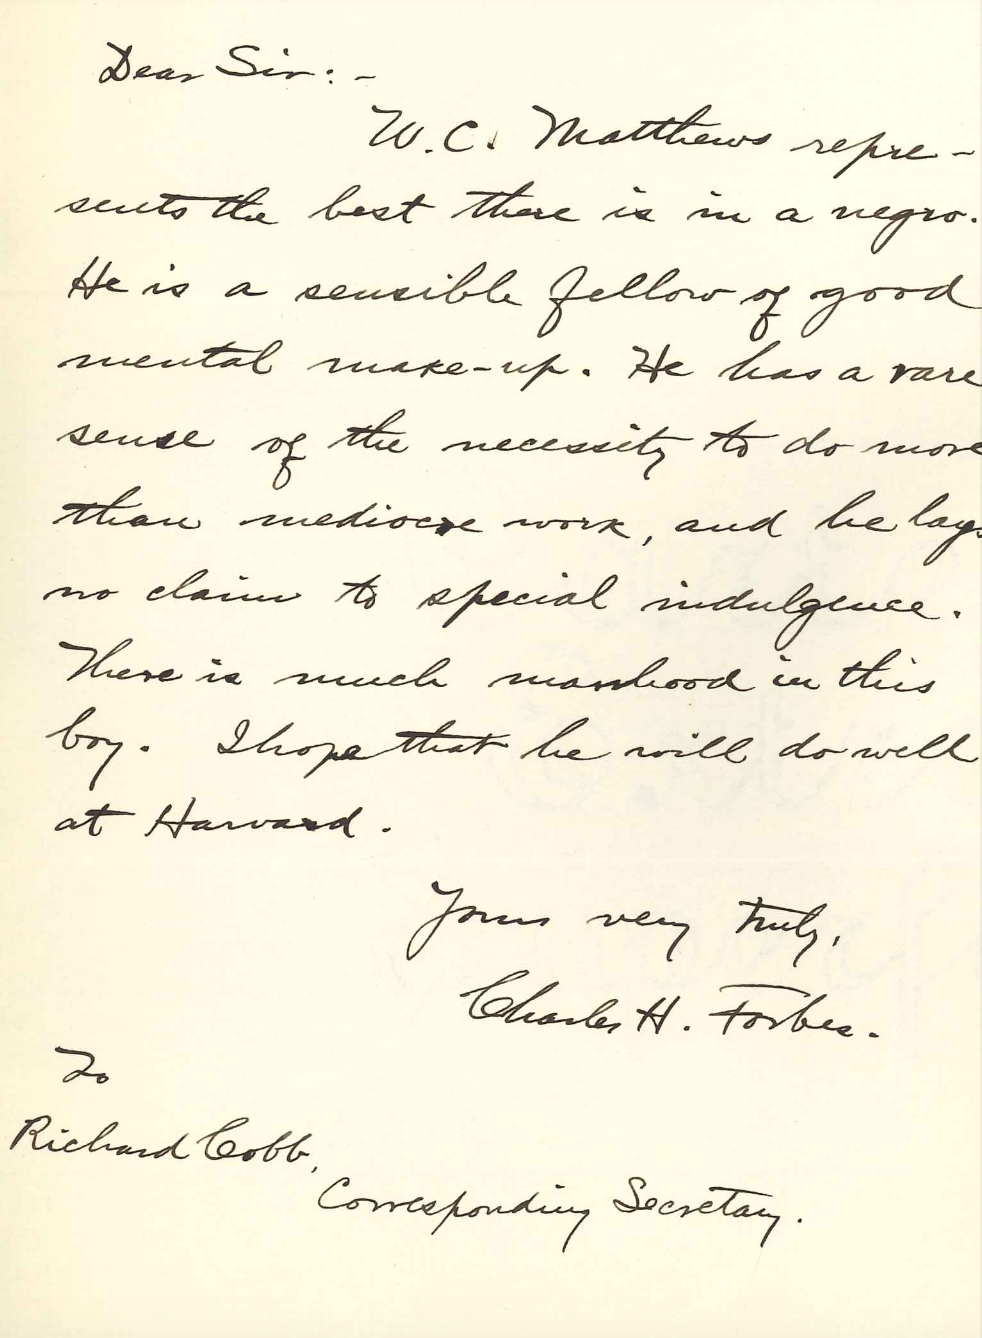 Dear Sir: -
W. C. Matthews repre-
sents the best there is in a negro.
He is a sensible fellow of good
mental make-up. He has a rare
sense of the necessity to do more
than mediocre work, and he lays
no claim to special indulgence.
There is much manhood in this
boy. I hope that he will do well
at Harvard.
Yours very truly,
Charles H. Forbes.
To
Richard Cobb,
Corresponding Secretary.